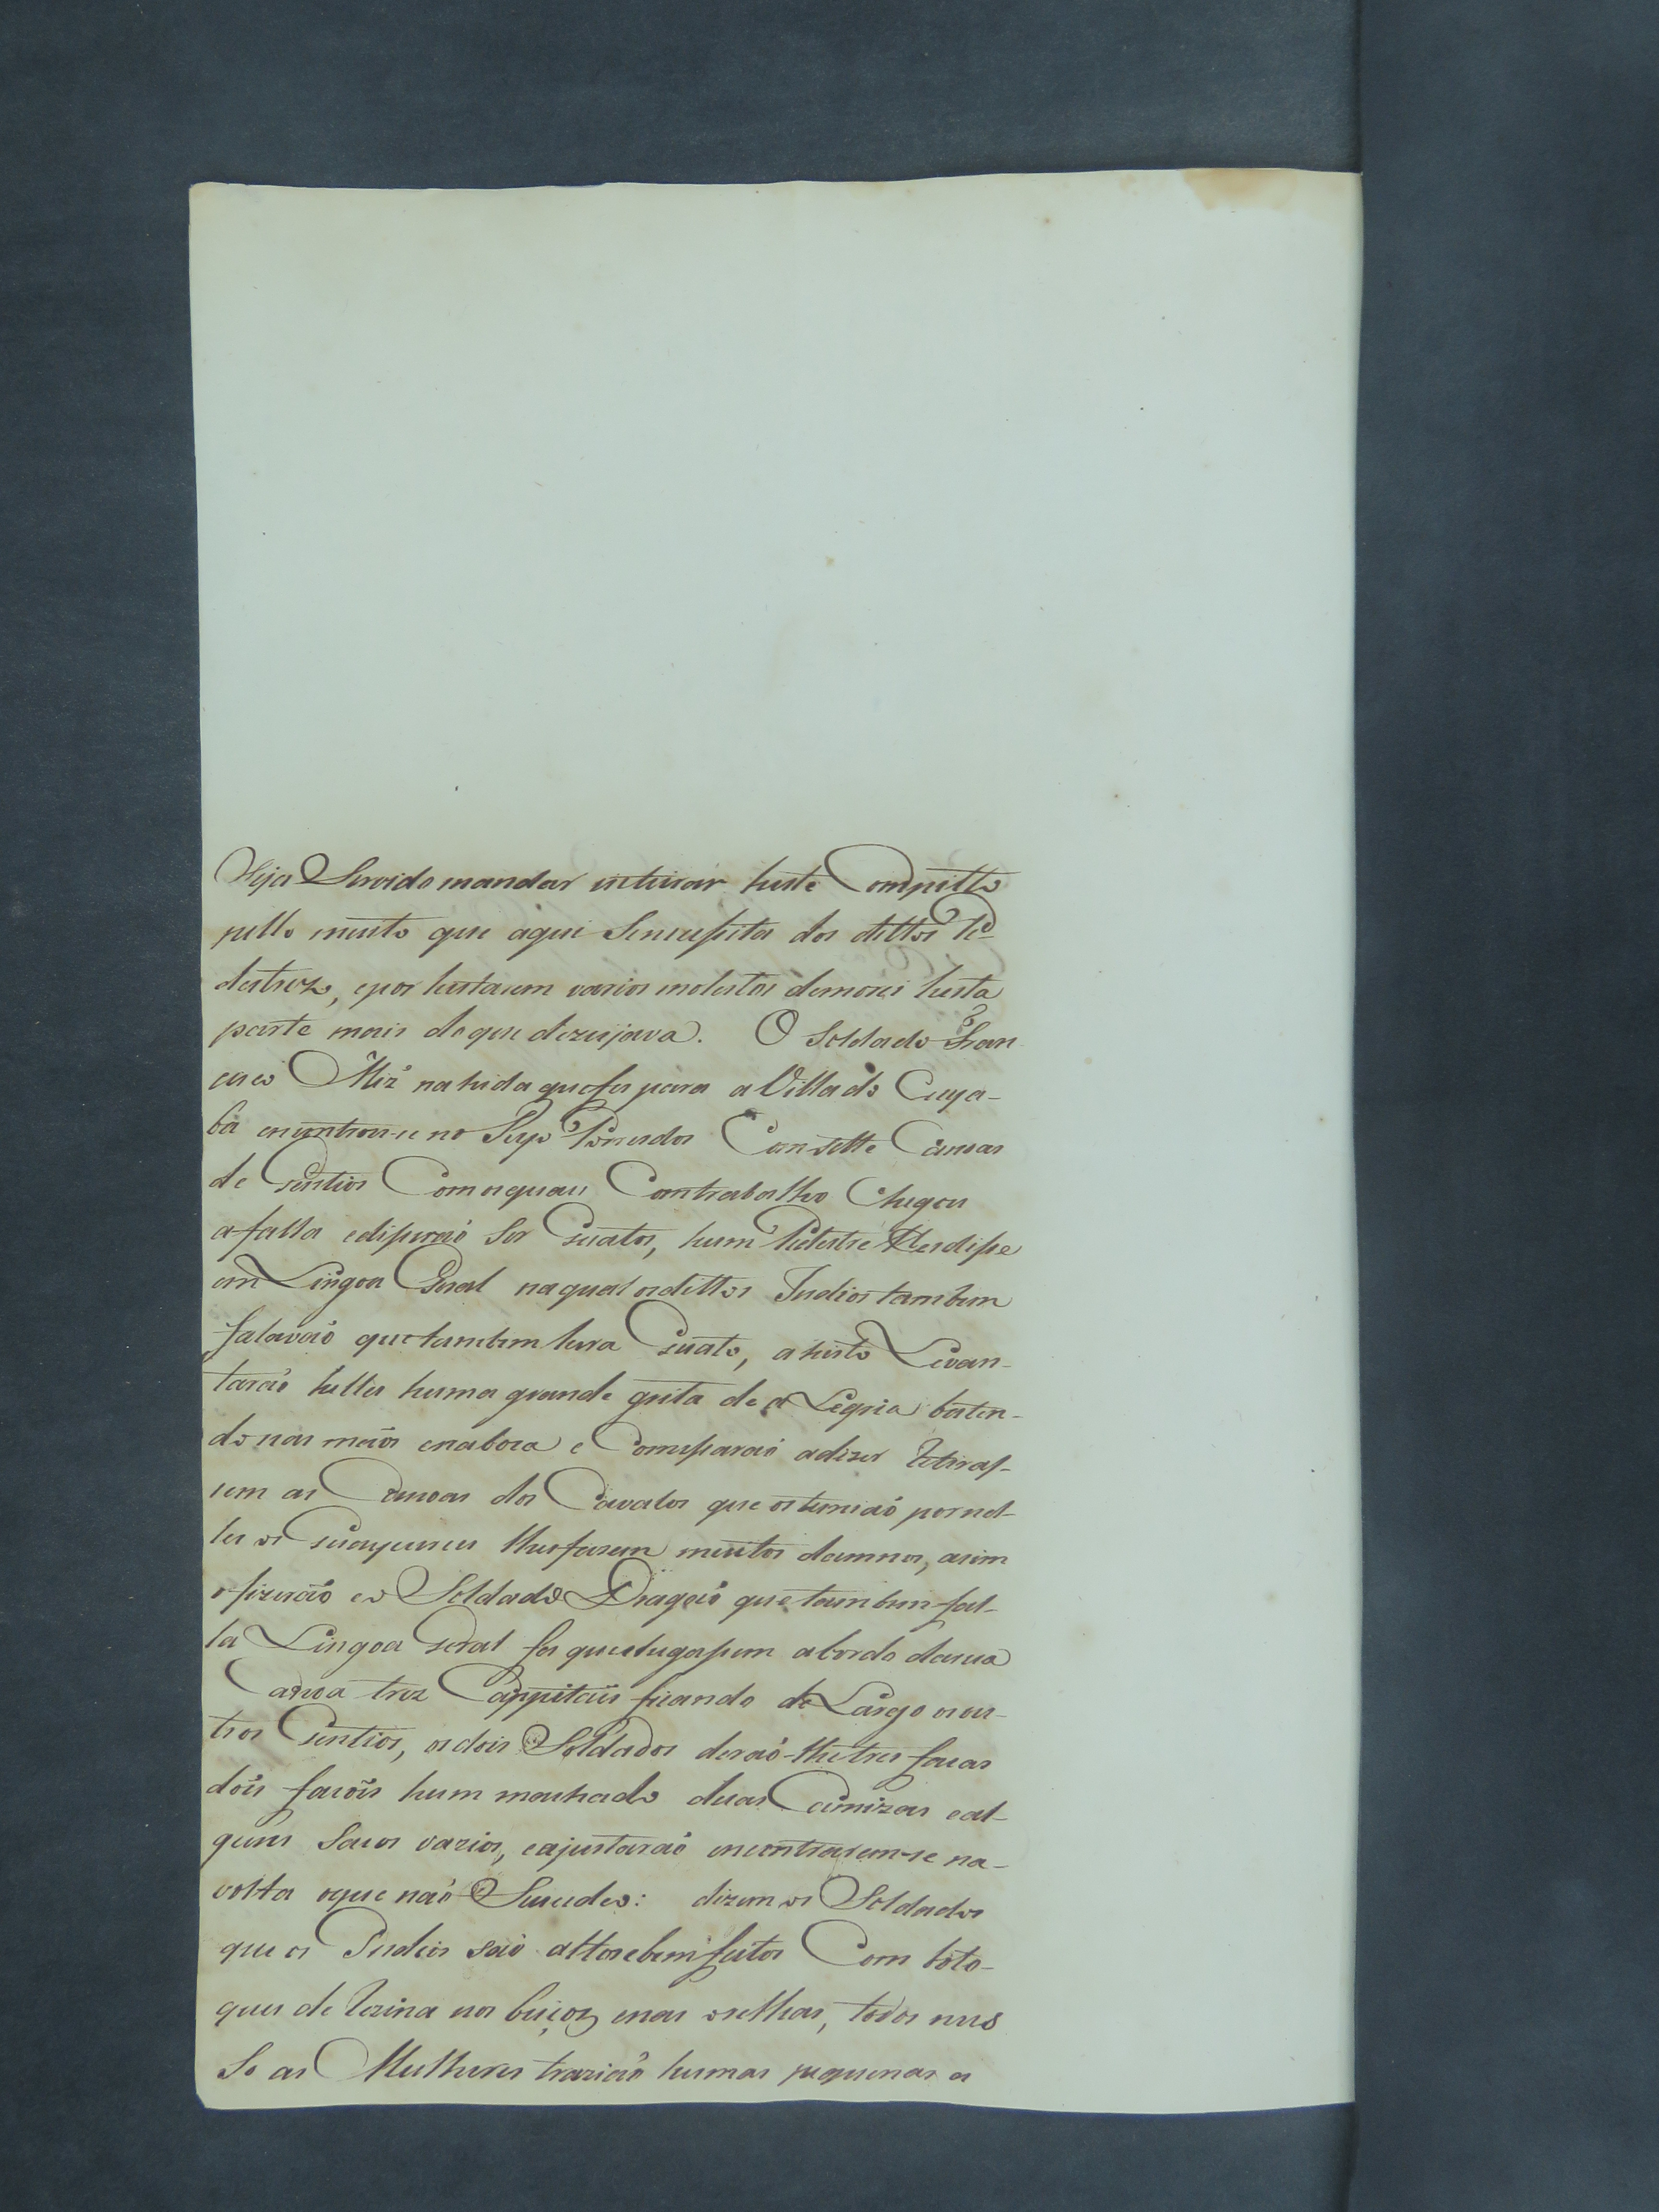 Seja Servido mandar inteirar heste Computto
pello muito que aqui Senecessita dos dittos Pe-
destrez, epor hestarem varios molestos demorei hesta
parte mais doque dezeijava. O Soldado Fran
cisco Miz' nahida quefes para a Villa do Cuya-
bá encontrou-se no Surjo Porrudos Com sette Canoas
de Gentios Comosquais Comtrabalho Chegou
afalla edisseraó Ser Guatos, hum Pedestre lhesdisse
em Lingoa Geral naqual osdittos Indios tambem
falavaó quetambem hera Guato, ahisto Levan-
taraó helles huma grande grita de aLegria baten-
do nas maos enaboca e Comessaraó adizer Retiras-
sem as Canoas dos Cavalos que ostemiaó pornel-
les os Guaycurus lhesfaserem muitos damnos, asim
ofizeraó eo Soldado Dragaó que tambem fal-
la Lingoa geral fes quechegassem abordo dasua
Canoa trez Cappitais ficando de Largo osou-
tros Gentios, osdois Soldados deraó-lhetres facas
dois facois hum machado duas Camizas eal-
guns Sacos vazios, eajustaraó encontrarem-se na-
volta oque naó Sucedeo: dizem os Soldados
que os Indios saó altosebemfeitos Com boto-
ques de Rezina nos beiços enas orelhas, todos nus
So as Mulheres traziaó humas pequenas a